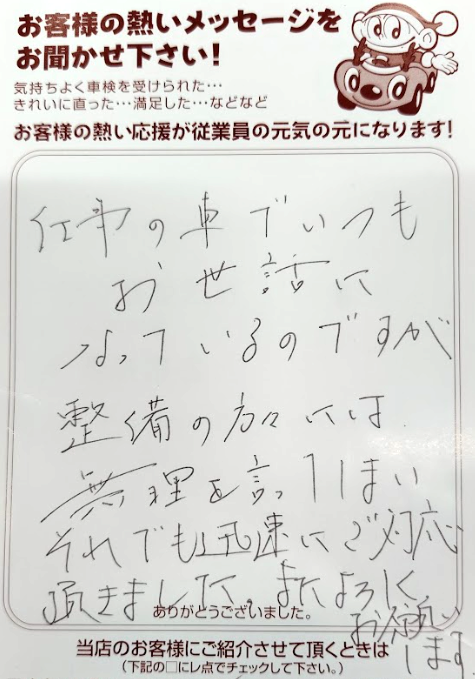 お客様の熱いメッセージを
お聞かせ下さい!
気持ちよく車検を受けられた…
きれいに直った…満足した…などなど
お客様の熱い応援が従業員の元気の元になります!
仕事の車でいつも
お世話に
なっているのですが
整備の方々には
無理を言ってしまい
それでも迅速にご対応
頂きました。またよろしく
お願い
します
ありがとうございました。
当店のお客様にご紹介させて頂くときは
(下記の□にレ点でチェックして下さい。)